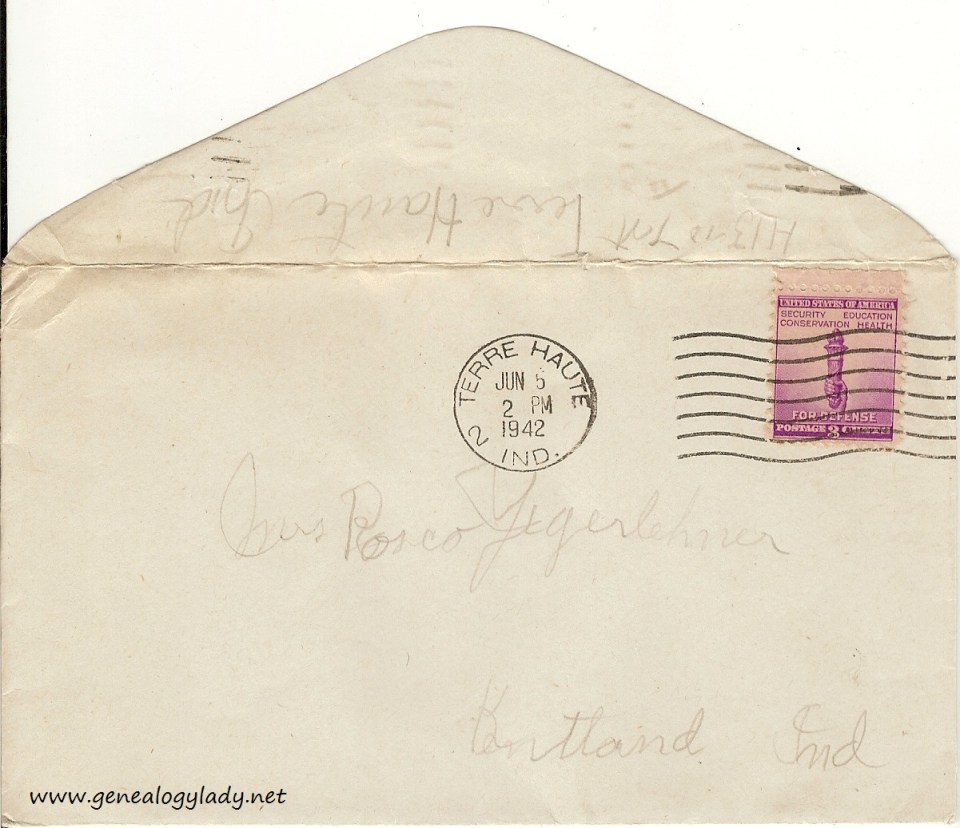 Terre Haute Ind
UNITED STATES OF AMERICA
SECURITY EDUCATION
CONSERVATION HEALTH
FOR DEFENSE
POSTAGE 3
TERRE HAUTE
JUN 5
2 PM
1942
2 IND.
Mrs Rosco Yegerlehner
Kentland Ind
www.genealogylady.net